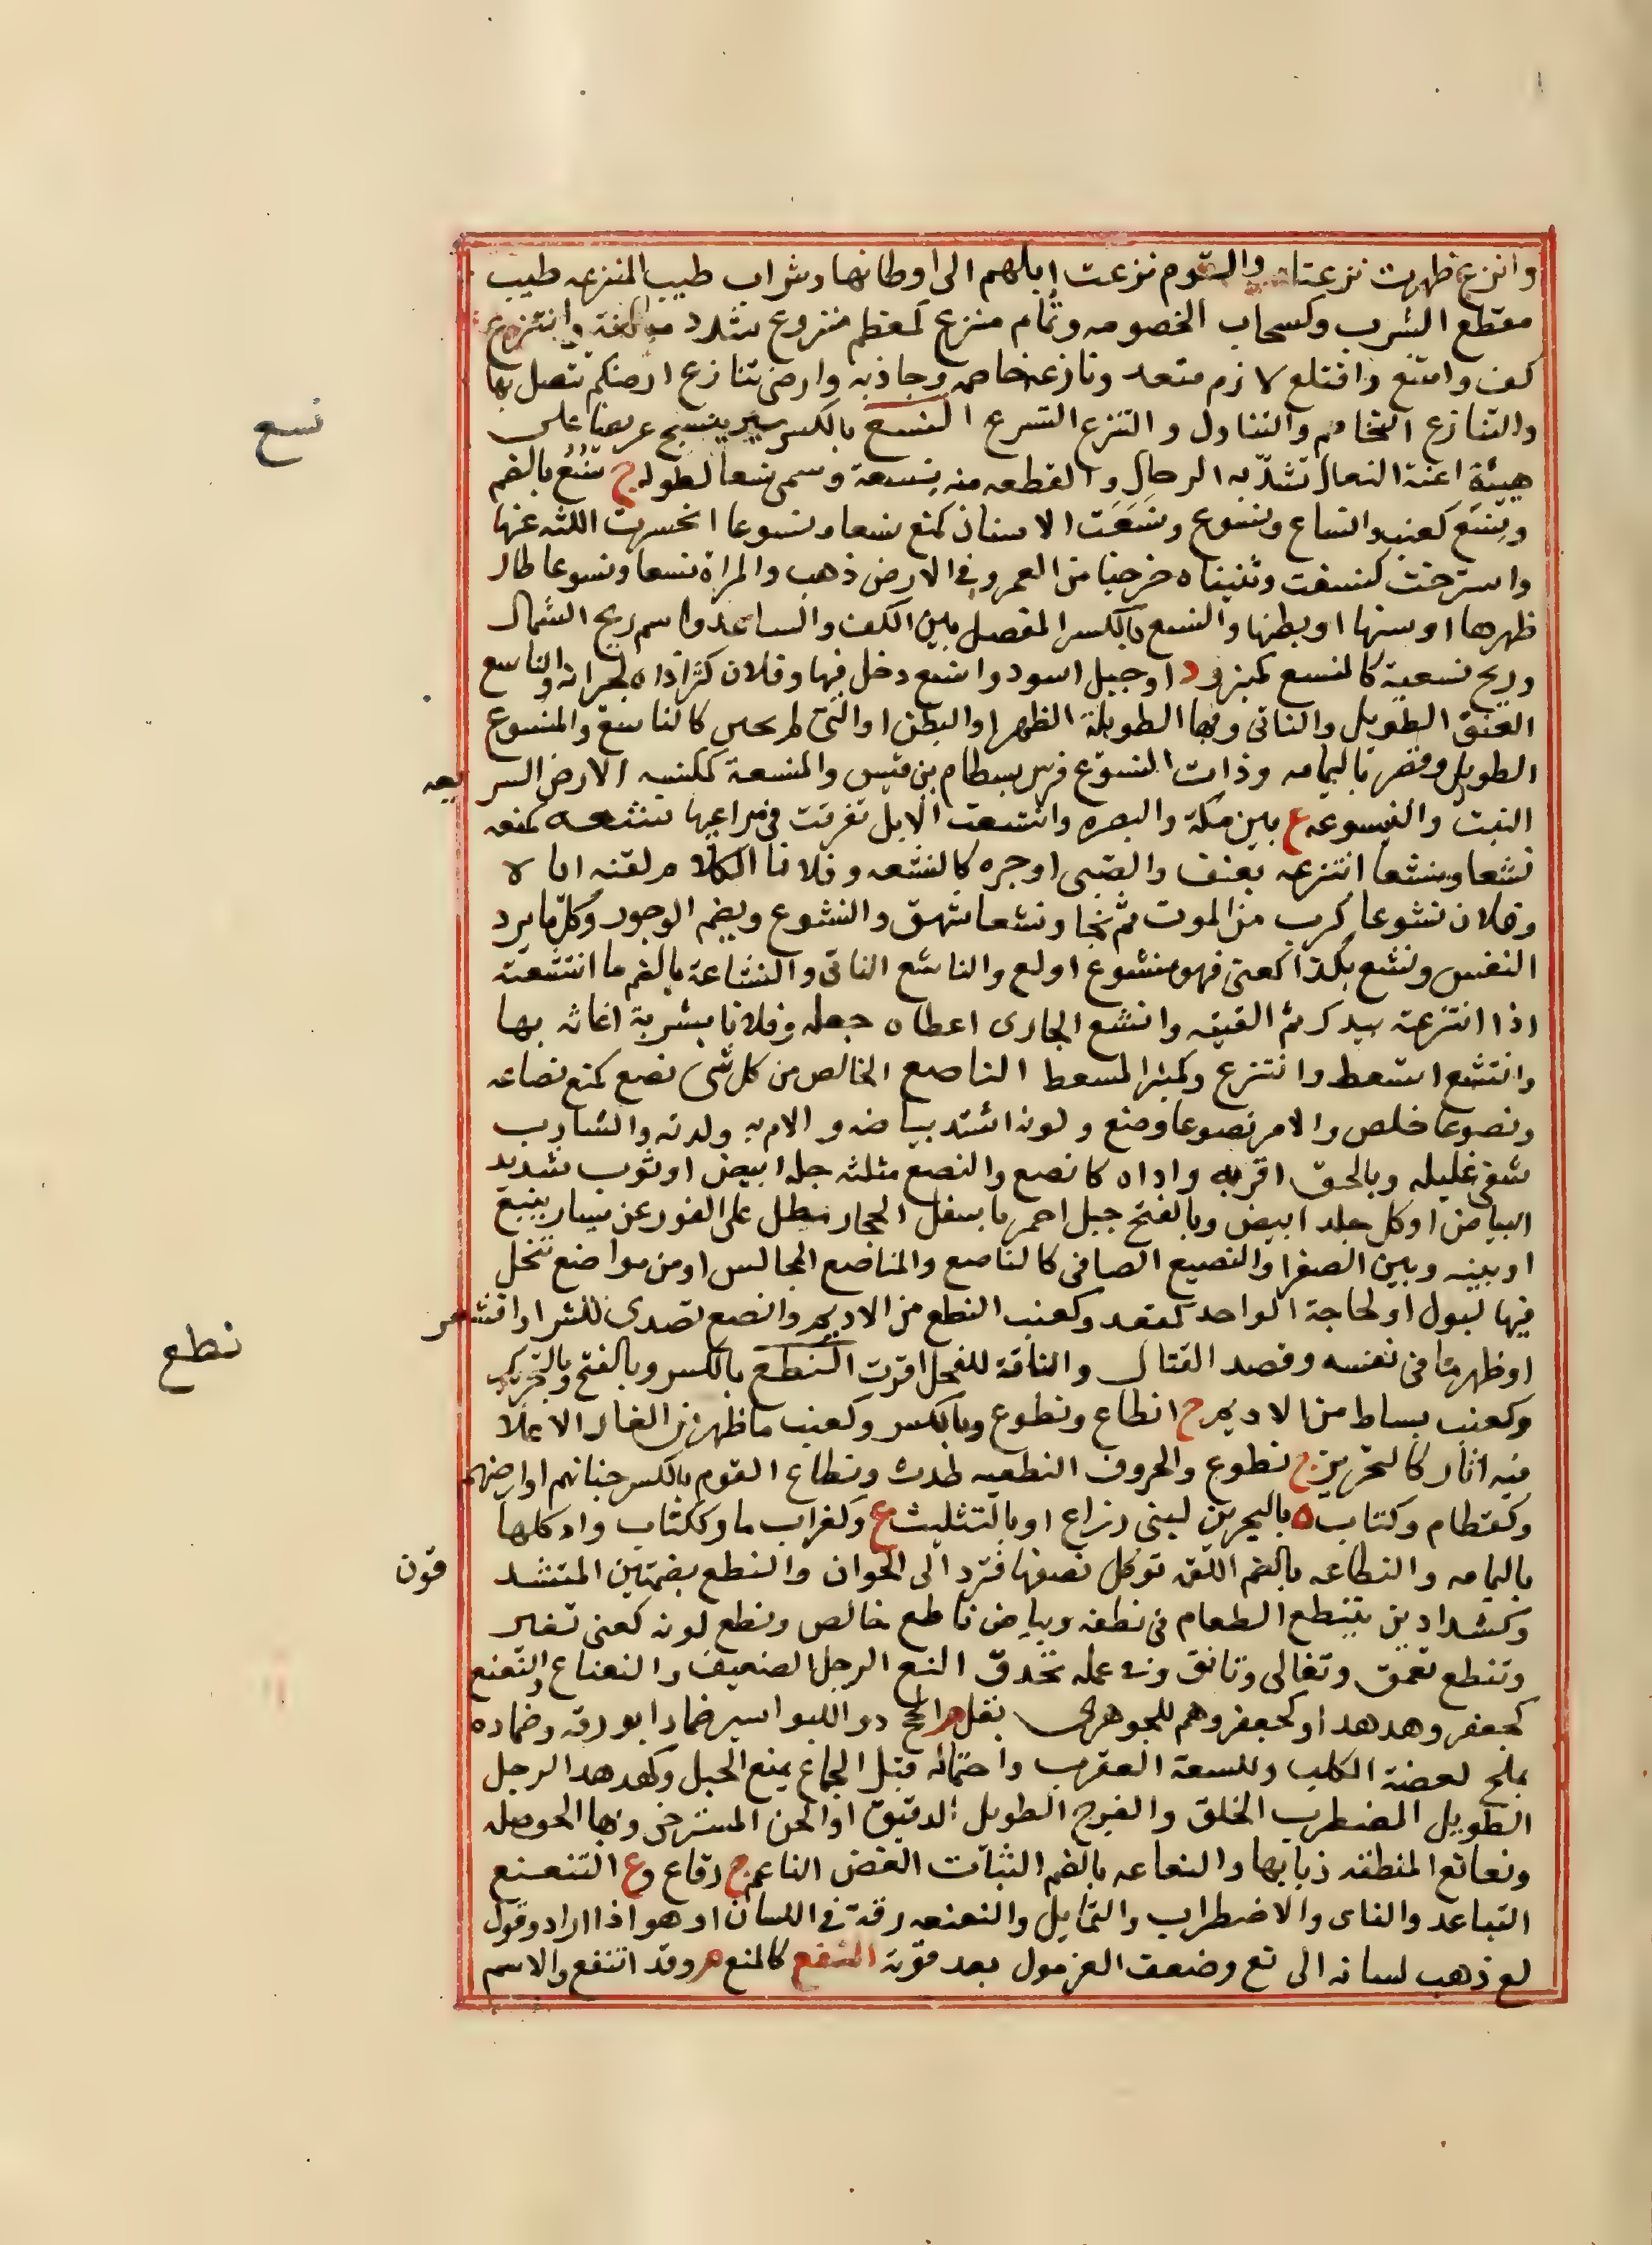 وانزع ظهرت نزعتاه والقوم نزعت إبلهم الى اوطانها وشراب طيب المنزعه طيب
مقطع الشرب وكسحاب الخصومه وثمام منزع كمعظم منزوع شدد مبالغة وانتزع
كف وامتنع واقتلع لازم متعد ونازعه خاصمه وجاذبه وارضى تنازع ارضكم تتصل بها
والتنازع التخاصم والتناول والتنزع التسرع النسع بالكسر سير ينسج عريضا على
هيئة اعنة النعال تشدّ به الرحال والقطعه منه نسعة وسمى نسعا لطوله ج نُسْع بالضم
ونِسَع كعنب وانساع ونسوع ونَسَعَت الاسنان كمنع نسعا ونسوعا انحسرت اللثه عنها
واسترخت كنسغت وثنيتاه خرجتا من العمر وفى الارض ذهب والمراة نسعا ونسوعا طال
ظهرها اوسنها اوبطنها والنسع بالكسر المفصل بين الكف والساعد واسم ريح الشمال
وريح نسعية كالمنسع كمنبر ود اوجبل اسود وانسع دخل فيها وفلان كثر اذاه لجيرانه والناسع
العنق الطويل والناتى وبها الطويلة الظهر او البطن او التى لم تختن كالناسع والمنسوع
الطويل وقصر باليمامه وذات النسوع فرس بسطام بن قيس والمنسعة ككنسه الارض السريعه
النبت والنيسوعه ع بين مكة والبصره وانتسعت الابل تفرقت فى مراعيها نشعه كمنعه
نشعا ومنشعا انتزعه بعنف والصبى اوجره كالنشعه وفلانا الكلام لقنه اياه
وفلان نشوعا كرب من الموت ثم نجا ونشعا شهق والنشوع ويضم الوجور وكلّ ما يرد
النفس ونشع بكذا كعنى فهو منشوع اولع والناشع الناتى والنشاعة بالضم ما انتشعته
اذا انتزعته بيدك ثم القيته وانشع الجارى اعطاه جعله وفلانا بشربة اغاثه بها
وانتشع استعط وانتزع وكمنبر المسعط الناصع الخالص من كل شى نصع كمنع نصاعه
ونصوعا خلص والامر نصوعا وضح ولونه اشتد بياضه والام به ولدته والشارب
شفى غليله وبالحق اقر به واداه كانصع والنصع مثلثه جلد ابيض اوثوب شديد
البياض اوكل جلد ابيض وبالفتح جبل احمر باسفل الحجاز مطل على الغور عن يسار ينبع
اوبينه وبين الصفرا والنصيع الصافى كالناصع والمناصع المجالس اومن مواضع تتخلى
فيها لبول او لحاجة الواحد كمقعد وكعنب النطع من الاديم وانصع تصدى للشر اواقشعر
اوظهر ما فى نفسه وقصد القتال والناقة للفحل اقرت النطع بالكسر وبالفتح وبالتحريك
وكعنب بساط من الاديم ج انطاع ونطوع وبالكسر وكعنب ما ظهر من الغار الاعلا
فيه اثار كالتحزيز ج نطوع والحروف النطعيه طدت ونطاع القوم بالكسر جنابهم اوارضهم
وكقطام وكتاب ة بالبحرين لبنى رزاح اوبالتثليث ع وكغراب ما وككتاب واد كلها
باليمامه والنطاعه بالضم اللقمه توكل نصفها فترد الى الخوان والنطع بضمتين المتشد
قون
وكشداد من يتنطع الطعام فى نطعه وبياض ناطع خالص ونطع لونه كعنى تغير
وتنطع تعمق وتغالى وتانق وفى عمله تحذق النع الرجل الضعيف والنعناع والنعنع
كجعفر وهدهد اوكجعفر وهم للجوهرى بقل م انجح دوا للبواسير ضمادا بورقه وضماده
بملح لعضة الكلب وللسعة العقرب واحتماله قبل الجماع يمنع الحبل وكهدهد الرجل
الطويل المضطرب الخلق والفرج الطويل الدقيق او الحر المسترخى وبها الحوصله
ونعانع المنطقه ذبابها والنعاعه بالضم النبات الغض الناعم ج نعاع وع التنعنع
التباعد والناى والاضطراب والتمايل والنعنعه رقة فى اللسان او هو اذا اراد وقول
لع ذهب لسانه الى نع وضعف الغرمول بعد قوته النفع كالمنع م وقد انتفع والاسم
نسع
نطع